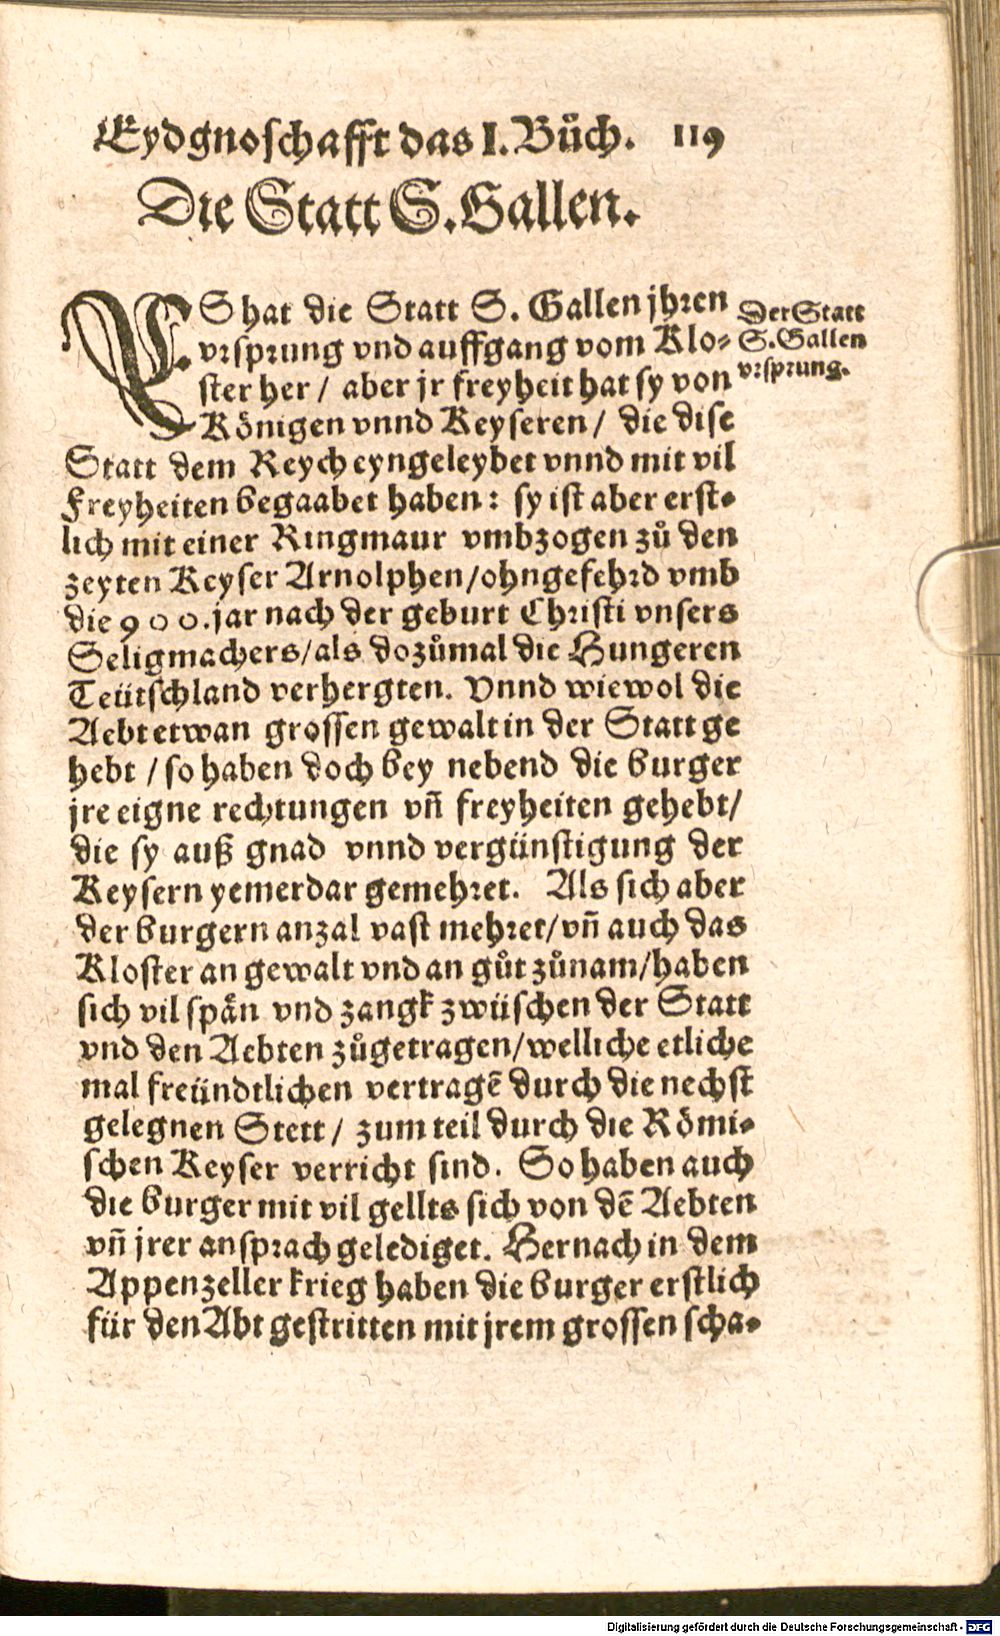 Eydgnoschafft das I. Bůch. 119
Die Statt S. Gallen.
ES hat die Statt S. Gallen jhren
vrsprung vnd auffgang vom Klo-
ster her / aber jr freyheit hat sy von
Königen vnnd Keyseren / die dise
Statt dem Reych eyngeleybet vnnd mit vil
Freyheiten begaabet haben: sy ist aber erst-
lich mit einer Ringmaur vmbzogen zů den
zeyten Keyser Arnolphen/ohngefehrd vmb
die 900. jar nach der geburt Christi vnsers
Seligmachers/als dozůmal die Hungeren
Teütschland verhergten. Vnnd wiewol die
Aebt etwan grossen gewalt in der Statt ge
hebt / so haben doch bey nebend die burger
jre eigne rechtungen vñ freyheiten gehebt/
die sy auß gnad vnnd vergünstigung der
Keysern yemerdar gemehret. Als sich aber
der burgern anzal vast mehret/vñ auch das
Kloster an gewalt vnd an gůt zůnam/haben
sich vil spän vnd zangk zwüschen der Statt
vnd den Aebten zůgetragen/welliche etliche
mal freündtlichen vertragē durch die nechst
gelegnen Stett / zum teil durch die Römi-
schen Keyser verricht sind. So haben auch
die burger mit vil gellts sich von dē Aebten
vñ jrer ansprach gelediget. Hernach in dem
Appenzeller krieg haben die burger erstlich
für den Abt gestritten mit jrem grossen scha-
Der Statt
S. Gallen
vrsprung.
Digitalisierung gefördert durch die Deutsche Forschungsgemeinschaft - DFG